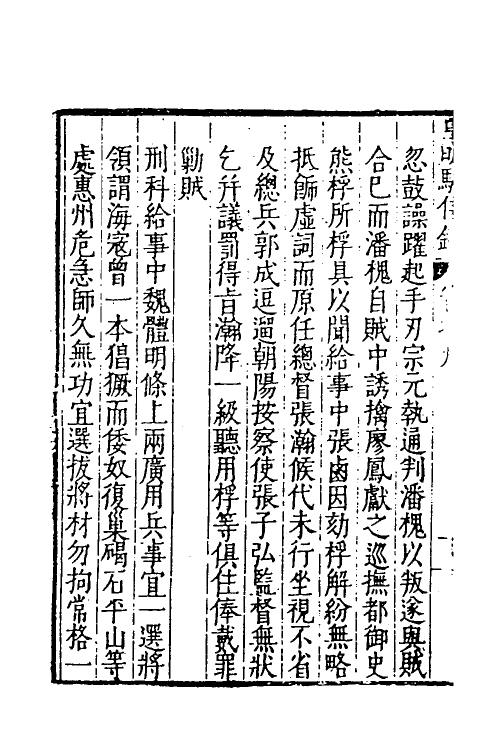 忽鼓譟躍起手刃宗元執通判潘槐以叛遂與賊
合已而潘槐自賊中誘擒廖鳳獻之巡撫都御史
熊桴所桴具以聞給事中張鹵因劾桴解紛無略
抵飾虛詞而原任總督張瀚候代未行坐視不省
及總兵郭成逗遛朝陽按察使張子弘監督無狀
乞并議罰得旨瀚降一級聽用桴等俱住俸戴罪
勦賊
刑科給事中魏體明條上兩廣用兵事宜一選將
領謂海寇曾一本倡獗而倭奴復巢碣石平山等
處惠州危急師久無功宜選拔將材勿拘常格一